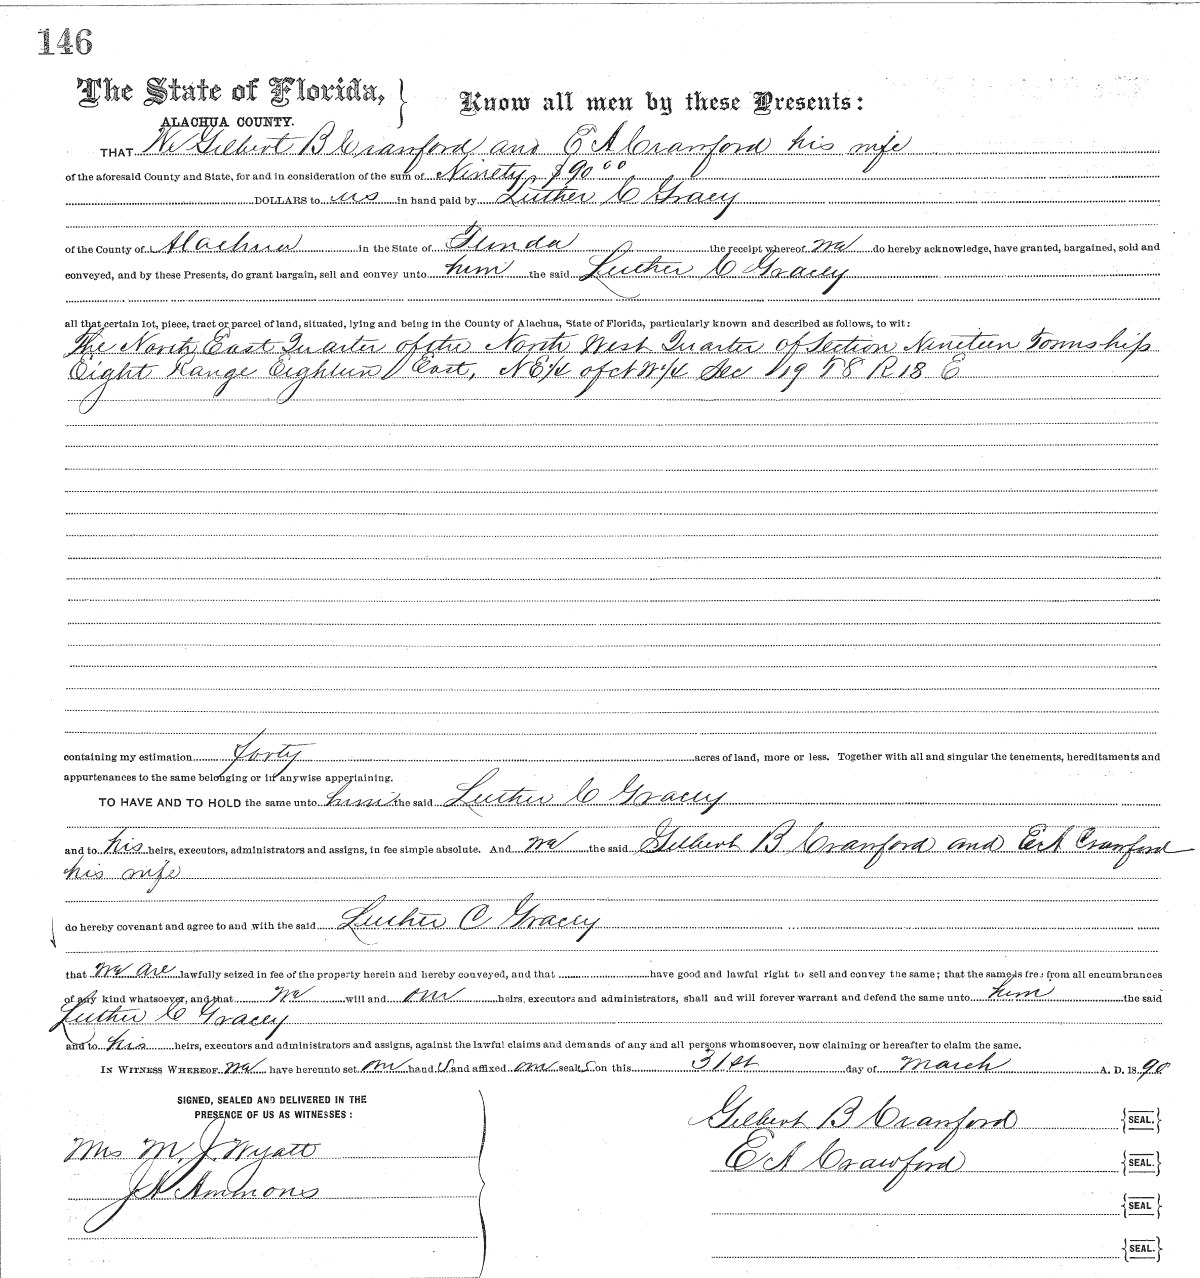 146
The State of Florida, } Know all men by these Presents:
ALACHUA COUNTY.
THAT We Gilbert B Crawford and E A Crawford his wife
of the aforesaid County and State, for and in consideration of the sum of Ninety $90 00
DOLLARS to us in hand paid by Luther C Gracy
of the County of Alachua in the State of Florida the receipt whereof we do hereby acknowledge, have granted, bargained, sold and
conveyed, and by these Presents, do grant bargain, sell and convey unto him the said Luther C Gracey
all that certain lot, piece, tract or parcel of land, situated, lying and being in the County of Alachua, State of Florida, particularly known and described as follows, to wit:
The North East Quarter of the North West Quarter of Section Nineteen Township
Eight Range Eighteen East, NE¼ of NW¼ Sec 19 T8 R18 E
containing my estimation forty acres of land, more or less. Together with all and singular the tenements, hereditaments and
appurtenances to the same belonging or in anywise appertaining.
TO HAVE AND TO HOLD the same unto him the said Luther C Gracey
and to his heirs, executors, administrators and assigns, in fee simple absolute. And we the said Gilbert B Crawford and E A Crawford
his wife
do hereby covenant and agree to and with the said Luther C Gracey
that we are lawfully seized in fee of the property herein and hereby conveyed, and that have good and lawful right to sell and convey the same; that the same is free from all encumbrances
of any kind whatsoever, and that we will and our heirs, executors and administrators, shall and will forever warrant and defend the same unto him the said
Luther C Gracey
and to his heirs, executors and administrators and assigns, against the lawful claims and demands of any and all persons whomsoever, now claiming or hereafter to claim the same.
IN WITNESS WHEREOF we have hereunto set our hands and affixed our seals on this 31st day of March A. D. 1890
SIGNED, SEALED AND DELIVERED IN THE
PRESENCE OF US AS WITNESSES:
Gilbert B Crawford {SEAL.}
Mrs M. J. Wyatt
E A Crawford {SEAL.}
J A Ammons
{SEAL}
{SEAL.}